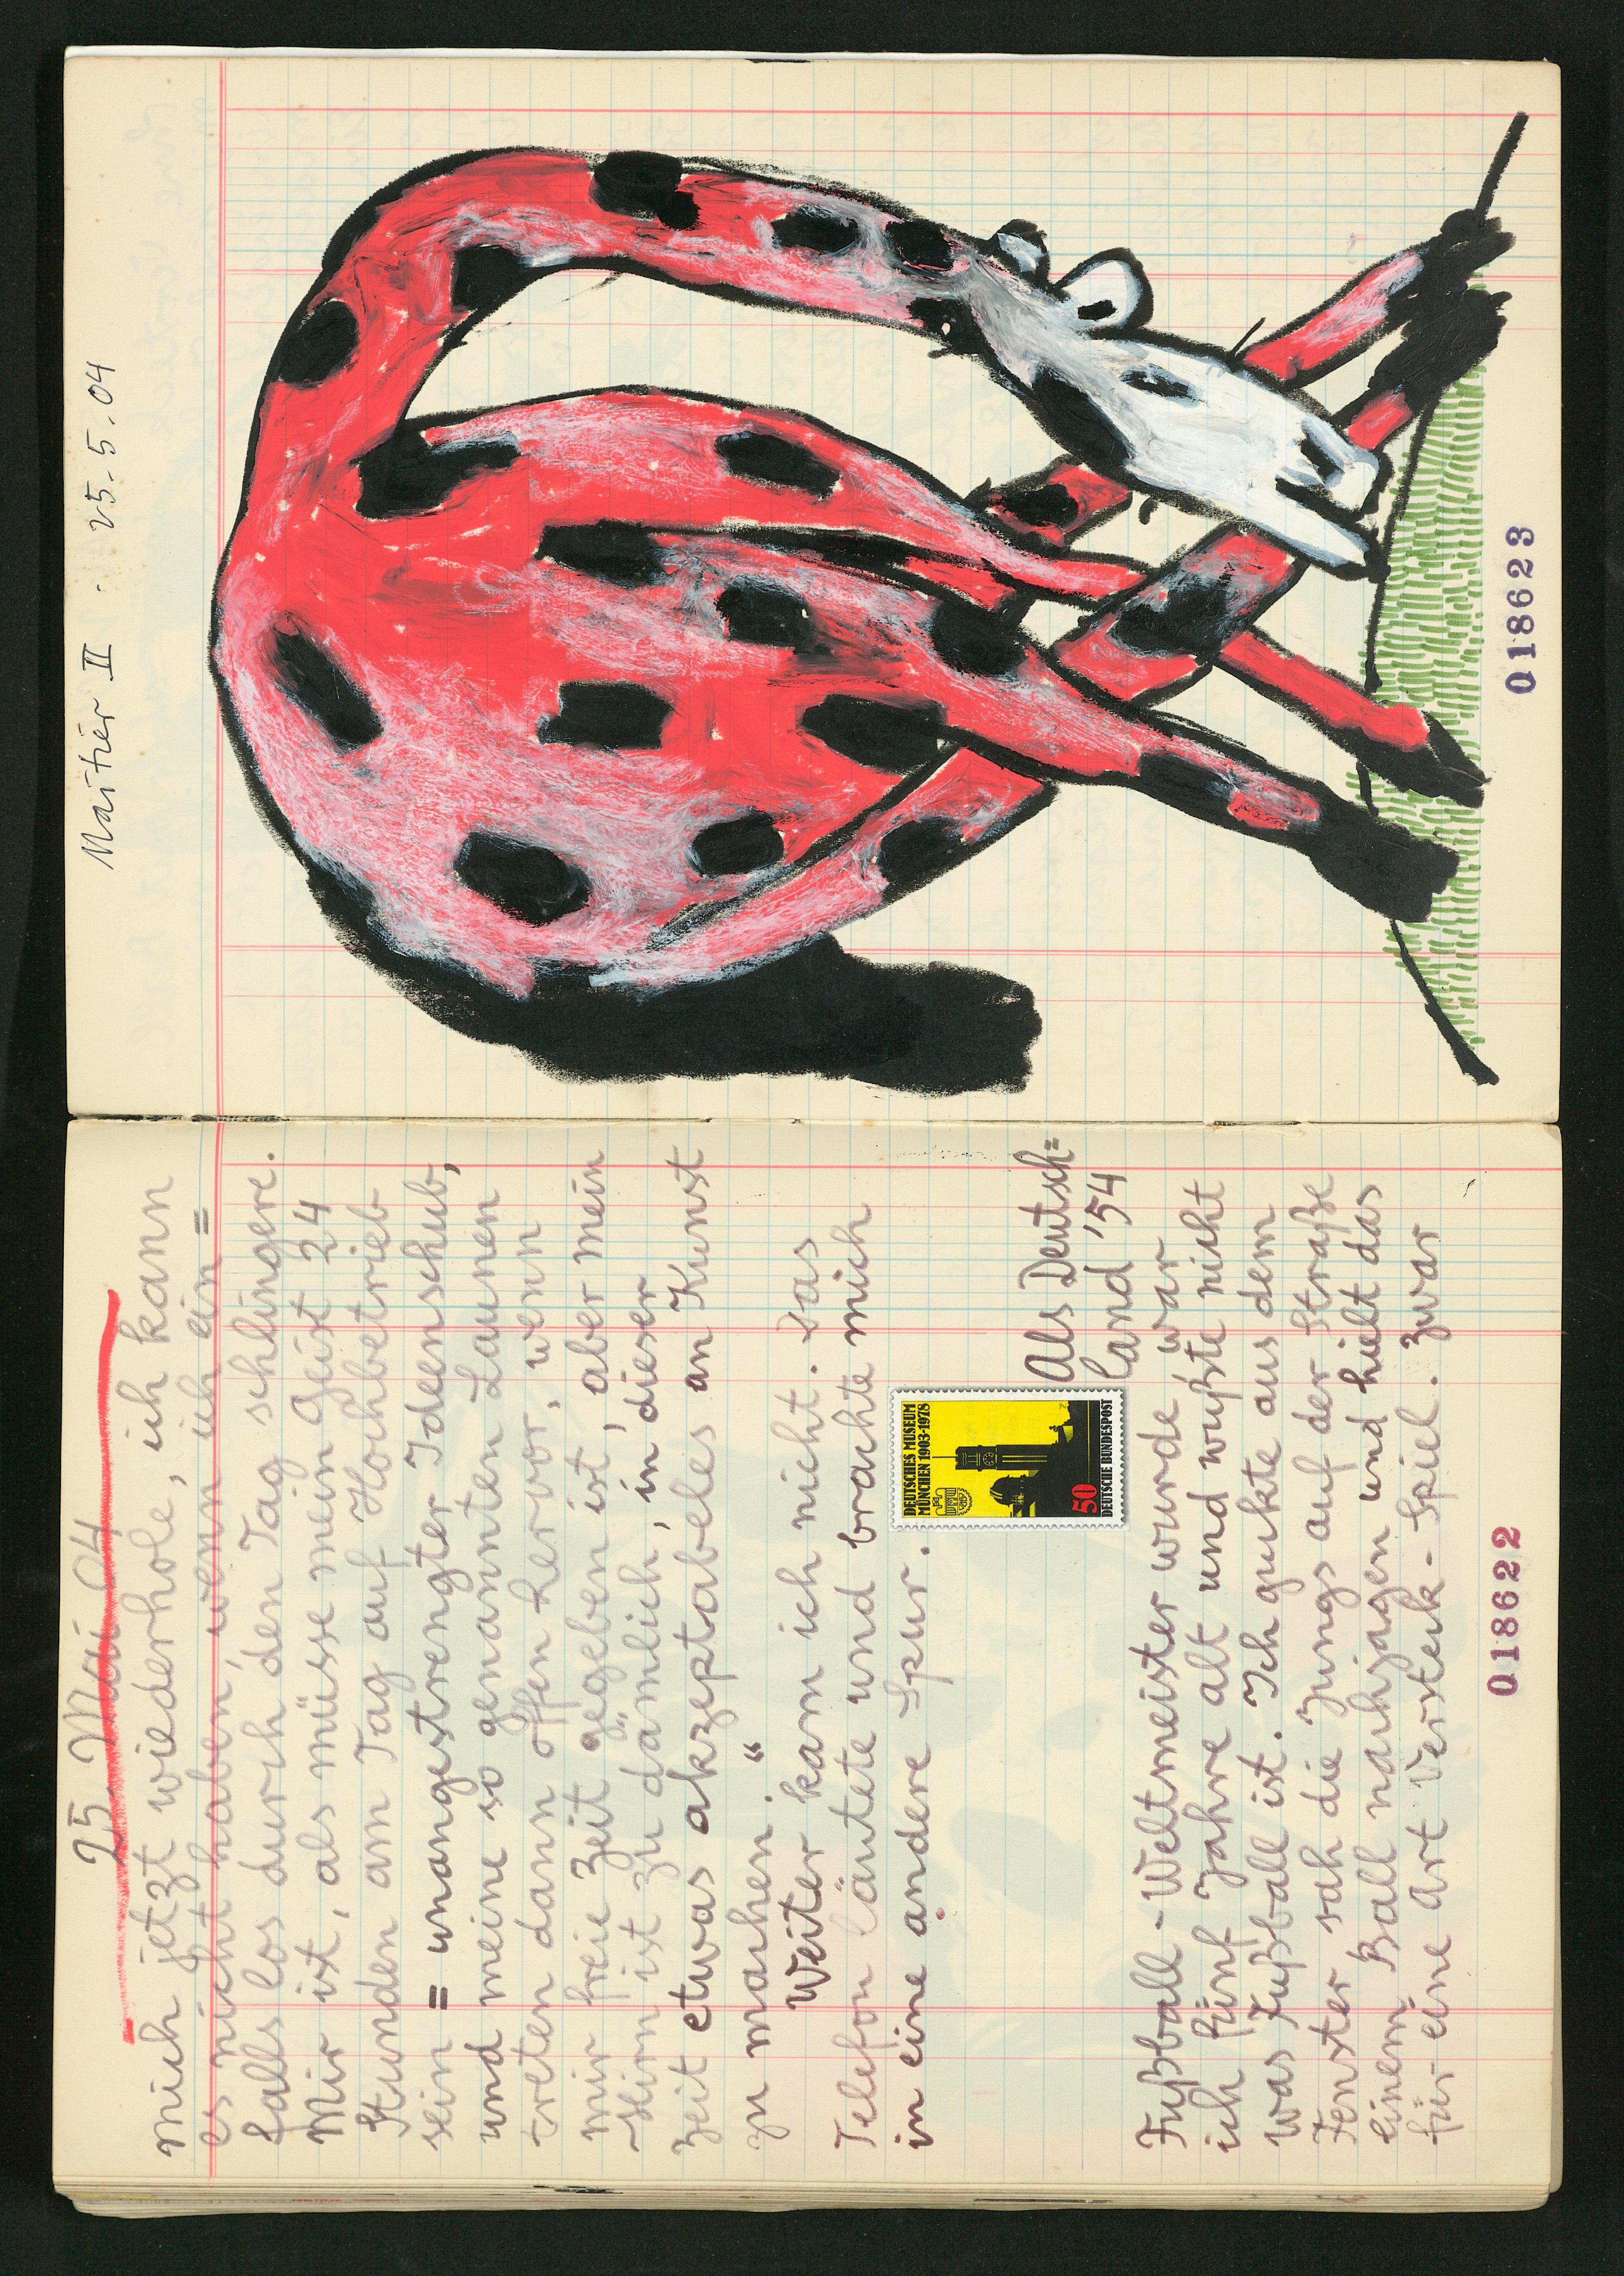 25. Mai 04
mich jetzt wiederhole, ich kann
es nicht haben, wenn ich ein =
falls los durch den Tag schlingere.
Mir ist, als müsse mein Geist 24
Stunden am Tag auf Hochbetrieb
sein = unangestrengter Ideenschub,
und meine so genannten Launen
treten dann offen hervor, wenn
mir freie Zeit gegeben ist, aber mein
-Hirn ist zu dämlich, in dieser
Zeit etwas akzeptabeles an Kunst
zu machen."
Weiter kam ich nicht. Das
Telefon läutete und brachte mich
in eine andere Spur.
DEUTSCHES MUSEUM
MÜNCHEN 1903-1978
50
DEUTSCHE BUNDESPOST
Als Deutsch=
land '54
Fußball-Weltmeister wurde, war
ich fünf Jahre alt und wußte nicht
was Fußball ist. Ich guckte aus dem
Fenster sah die Jungs auf der Straße
einem Ball nachjagen und hielt das
für eine Art Versteck-Spiel. Zwar
018622
Maitier II - 25.5.04
018623